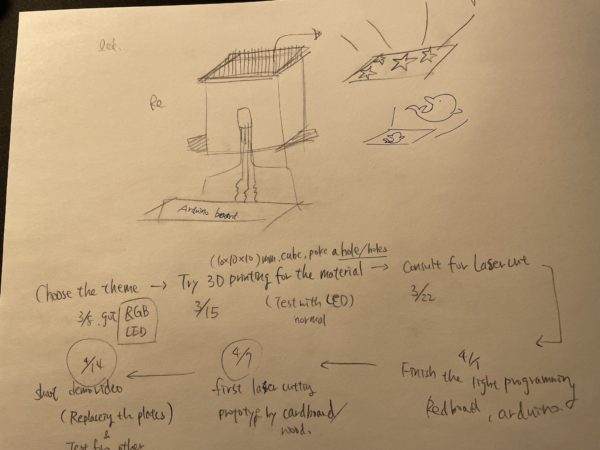 Arduino board
(10x10x10)mm cube, poke a hole/holes
Choose the theme → Try 3D printing for the material → Consult for Lasercut
3/8. got RGB LED
3/15
(Test with LED)
normal
3/22
4/1
Finish the light programming
Redboard, arduino.
4/7
first laser cutting
prototype by cardboard/
wood.
4/14
demo video
(Replacing the plates)
&
Test for other